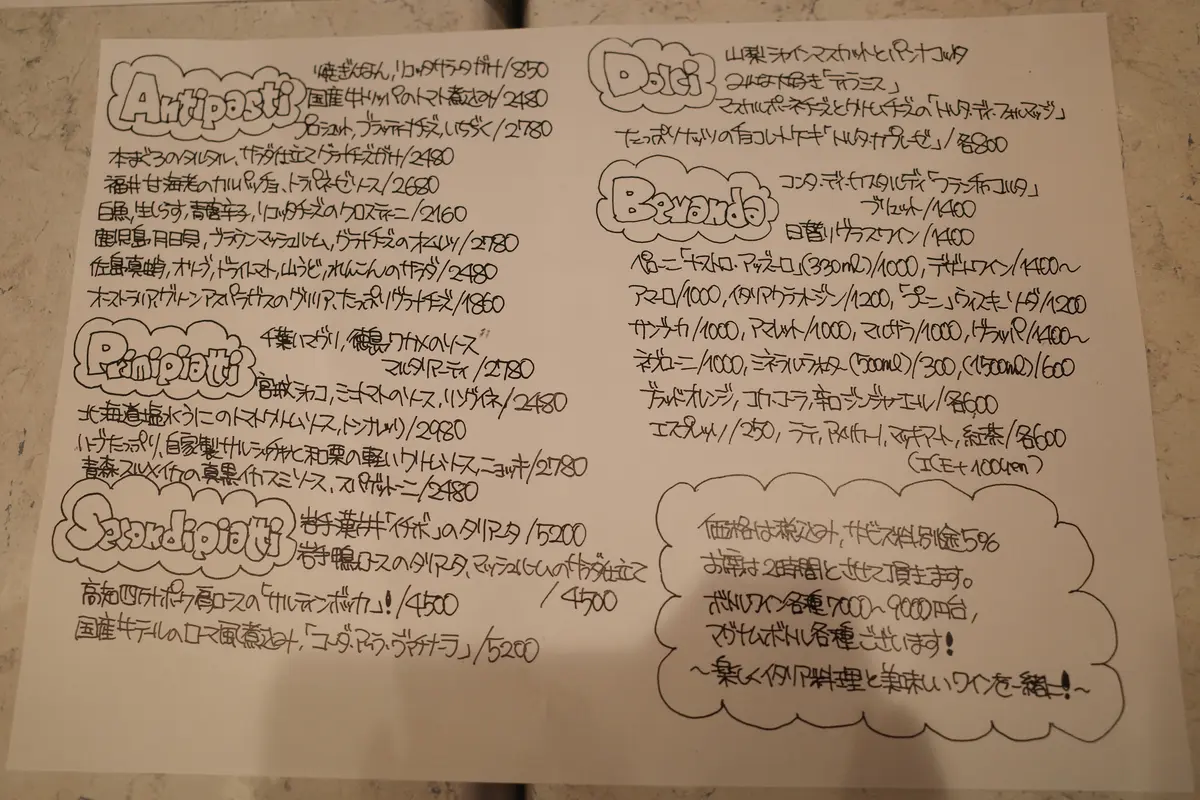 Antipasti
焼ぎんなん,リコッタサラータがけ/850
国産牛トリッパのトマト煮込み/2480
プロシュット,ブラッティーナチーズ,いちぢく/2780
本まぐろのタルタル、サラダ仕立てグラナチーズがけ/2480
福井甘海老のカルパッチョ,トラパネーゼソース/2680
白魚,生しらす,青唐辛子,リコッタチーズのクロスティーニ/2160
鹿児島月日貝,ブラウンマッシュルーム,グラナチーズのオムレツ/2780
佐島真蛸,オリーブ,ドライトマト,山うど,れんこんのサラダ/2480
オーストラリアグリーンアスパラガスのグリリア,たっぷりグラナチーズ/1860
Primipiatti
千葉ハマグリ,徳島ワカメのソース
マルタリアーティ/2780
宮城シャコ,ミニトマトのソース,リングイネ/2480
北海道塩水うにのトマトクリームソース,トンナレッリ/2980
ハーブたっぷり,自家製サルシッチャと和栗の軽いクリームソース,ニョッキ/2780
青森スルメイカの真黒イカスミソース,スパゲットーニ/2480
Secondipiatti
岩手漢方牛「イチボ」のタリアータ/5200
岩手鴨ロースのタリアータ,マッシュルームのサラダ仕立て
/4500
高知四万十ポーク肩ロースの「サルティンボッカ」!/4500
国産牛テールのローマ風煮込み,「コーダ・アッラ・ヴァチナーラ」/5200
Dolci
山梨シャインマスカットとパンナコッタ
みんな大好き「ティラミス」
マスカルポーネチーズとクリームチーズの「トルタ・ディ・フォルマッジ」
たっぷりナッツのチョコレートケーキ「トルタカプレーゼ」/各800
Bevanda
コンタ・ディ・カスタルディ「フランチャコルタ」
ブリュット/1400
日替りグラスワイン/1400
ペローニ「ナストロ・アッズーロ」(330ml)/1000,デザートワイン/1400〜
アマーロ/1000,イタリアクラフトジン/1200,「プーニ」ウィスキーソーダ/1200
サンブーカ/1000,アマレット/1000,マルサラ/1000,グラッパ/1400〜
ネグローニ/1000,ミネラルウォーター(500ml)/300,(1500ml)/600
ブラッドオレンジ,コカ・コーラ,辛口ジンジャーエール/各600
エスプレッソ/250,ラテ,アメリカーノ,マッキアート,紅茶/各600
(ICE+100yen)
価格は税込み,サービス料別途5%
お席は2時間とさせて頂きます。
ボトルワイン各種7000〜9000円台,
マグナムボトル各種ございます!
〜楽しくイタリア料理と美味しいワインを一緒に!〜